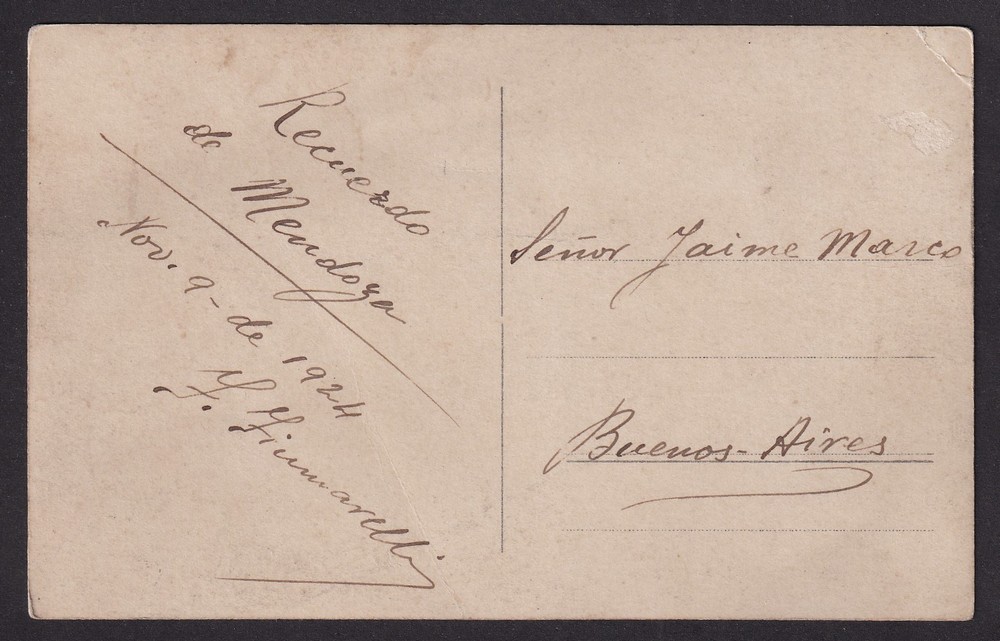 Recuerdo
de Mendoza
Nov. 9- de 1924
Señor Jaime Marco
Buenos-Aires